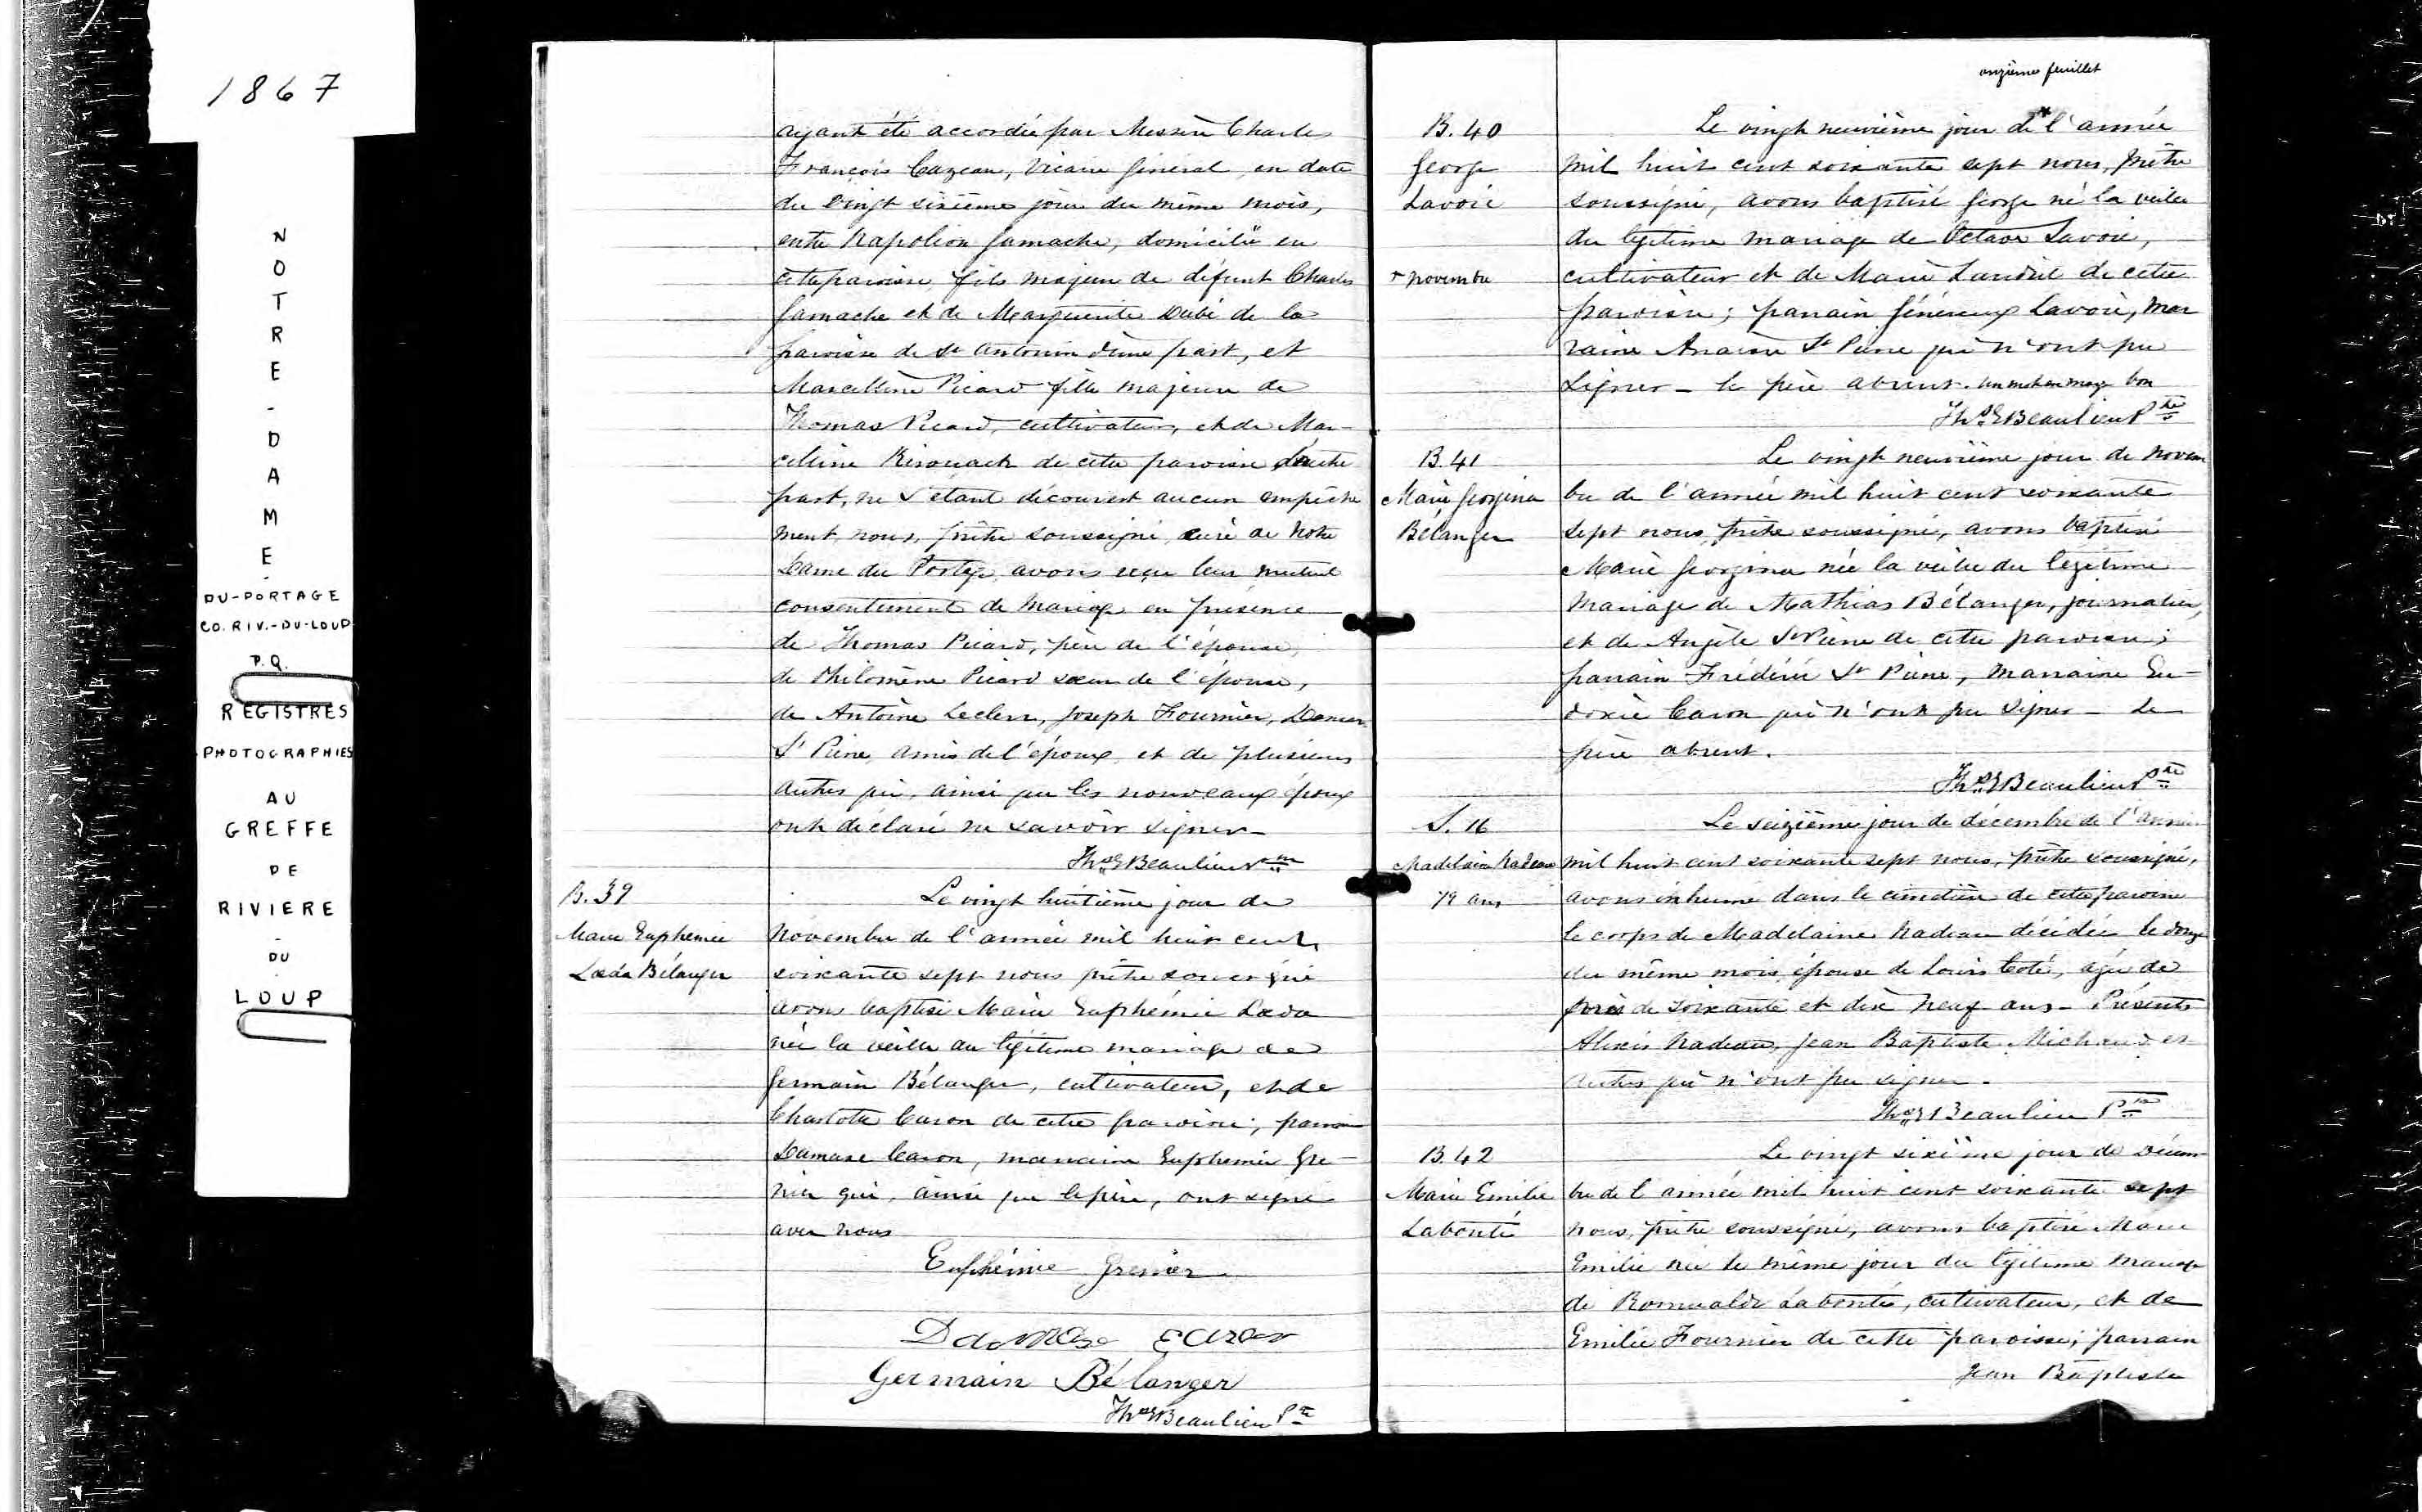 1867
NOTRE-DAME-
DU-PORTAGE
CO. RIV.-DU-LOUP
P.Q.
REGISTRES
PHOTOGRAPHIES
AU
GREFFE
DE
RIVIERE
-
DU
LOUP
ayant été accordée par Messire Charles
François Cazeau, Vicaire général, en date
du Vingt sixième jour du même mois,
entre Napoléon Gamache, domicilié en
cette paroisse, fils majeur de défunt Charles
Gamache et de Marguerite Dubé de la
paroisse de St Antonin d'une part, et
Marcelline Picard fille majeure de
Thomas Picard, cultivateur, et de Mar-
celline Kirouack de cette paroisse d'autre
part, ne s'étant découvert aucun empêche
ment, nous, prêtre soussigné, curé de Notre
Dame du Portage, avons reçu leur mutuel
consentement de mariage en présence
de Thomas Picard, père de l'épouse,
de Philomène Picard soeur de l'épouse,
de Antoine Leclerc, Joseph Fournier,
St Pierre, amis de l'époux, et de plusieurs
autres qui, ainsi que les nouveaux époux
ont déclaré ne savoir signer -
Ths E Beaulieu Ptre
B. 39
Marie Euphémie
Bélanger
Le vingt huitième jour de
Novembre de l'année mil huit cent
soixante sept nous prêtre soussigné
avons baptisé Marie Euphémie
née la veille du légitime mariage de
Germain Bélanger, cultivateur, et de
Charlotte Caron de cette paroisse; parrain
Damase Caron, marraine Euphémie Gre-
nier qui, ainsi que le père, ont signé
avec nous
Euphémie Grenier
Damase Caron
Germain Bélanger
Ths E Beaulieu Ptre
onzième feuillet
B. 40
George
Lavoie
+ novembre
Le vingt neuvième jour de * l'année
mil huit cent soixante sept nous, prêtre
soussigné, avons baptisé George né la veille
du légitime mariage de Octave Lavoie,
cultivateur et de Marie Landrie de cette
paroisse; parrain Généreux Lavoie, mar
raine St Pierre qui n'ont pu
signer - le père absent. un mot en marge bon
Ths E Beaulieu Ptre
B. 41
Marie Georgina
Bélanger
Le vingt neuvième jour de Novem
bre de l'année mil huit cent soixante
sept nous, prêtre soussigné, avons baptisé
Marie Georgina née la veille du légitime
mariage de Mathias Bélanger, journalier,
et de Angèle St Pierre de cette paroisse;
parrain Frédéric St Pierre, marraine Eu-
doxie Caron qui n'ont pu signer - Le
père absent.
Ths E Beaulieu Ptre
S. 16
Madelaine Nadeau
79 ans
Le seizième jour de décembre de l'année
mil huit cent soixante sept nous, prêtre soussigné,
avons inhumé dans le cimetière de cette paroisse
le corps de Madelaine Nadeau décédée le douze
du même mois, épouse de Louis Coté, agée de
près de soixante et dix neuf ans - Présents
Alexis Nadeau, Jean Baptiste Michaud et
autres qui n'ont pu signer -
Ths E Beaulieu Ptre
B. 42
Marie Emilie
Labonté
Le vingt sixième jour de Décem
bre de l'année mil huit cent soixante sept
nous, prêtre soussigné, avons baptisé Marie
Emilie née le même jour du légitime mariage
de Romuald Labonté, cultivateur, et de
Emilie Fournier de cette paroisse; parrain
Jean Baptiste